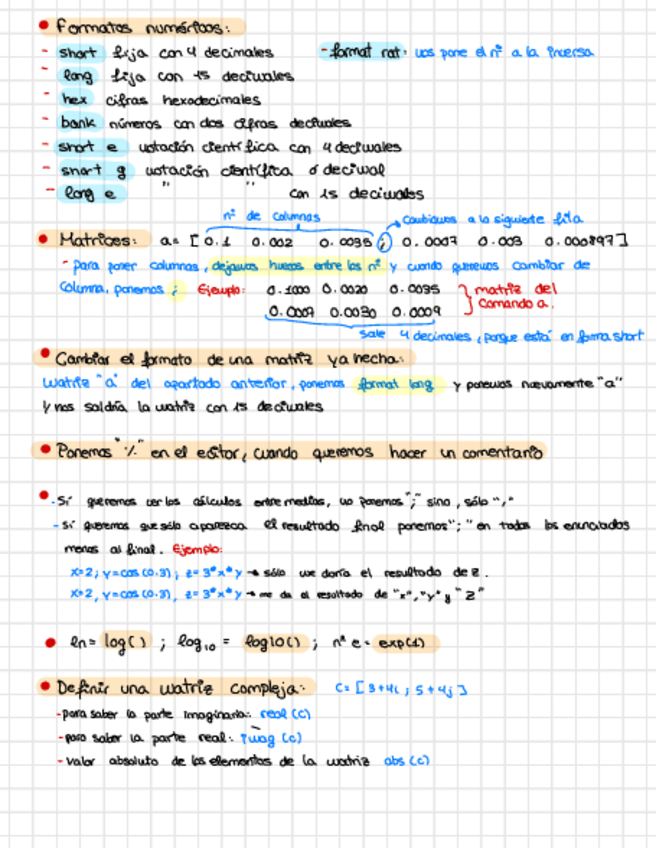 • Formatos numéricos:
- short fija con 4 decimales - format rat: nos pone el nº a la inversa
- long fija con 15 decimales
- hex cifras hexadecimales
- bank números con dos cifras decimales
- short e notación científica con 4 decimales
- short g notación científica ó decimal
- long e " " con 15 decimales
nº de columnas cambiamos a la siguiente fila
• Matrices: a= [0.1 0.002 0.0035 ; 0.0007 0.003 0.000897]
- para poner columnas, dejamos huecos entre los nº y cuando queremos cambiar de
columna, ponemos ; Ejemplo: 0.1000 0.0020 0.0035 matriz del
0.0007 0.0030 0.0009 comando a.
sale 4 decimales, porque está en forma short
• Cambiar el formato de una matriz ya hecha:
matriz "a" del apartado anterior, ponemos format long y ponemos nuevamente "a"
y nos saldría la matriz con 15 decimales
• Ponemos "%" en el editor, cuando queremos hacer un comentario
• - Sí queremos ver los cálculos entre medias, no ponemos ";" sino, sólo ","
- sí queremos que sólo aparezca el resultado final ponemos ";" en todos los enunciados
menos al final. Ejemplo:
x=2; y=cos(0.3); z=3*x*y → sólo me daría el resultado de z.
x=2, y=cos(0.3), z=3*x*y → me da el resultado de "x", "y" y "z"
• ln= log() ; log10 = log10() ; nº e= exp(1)
• Definir una matriz compleja: c= [3+4i ; 5+4j]
- para saber la parte imaginaria: real (c)
- para saber la parte real: imag (c)
- valor absoluto de los elementos de la matriz abs (c)